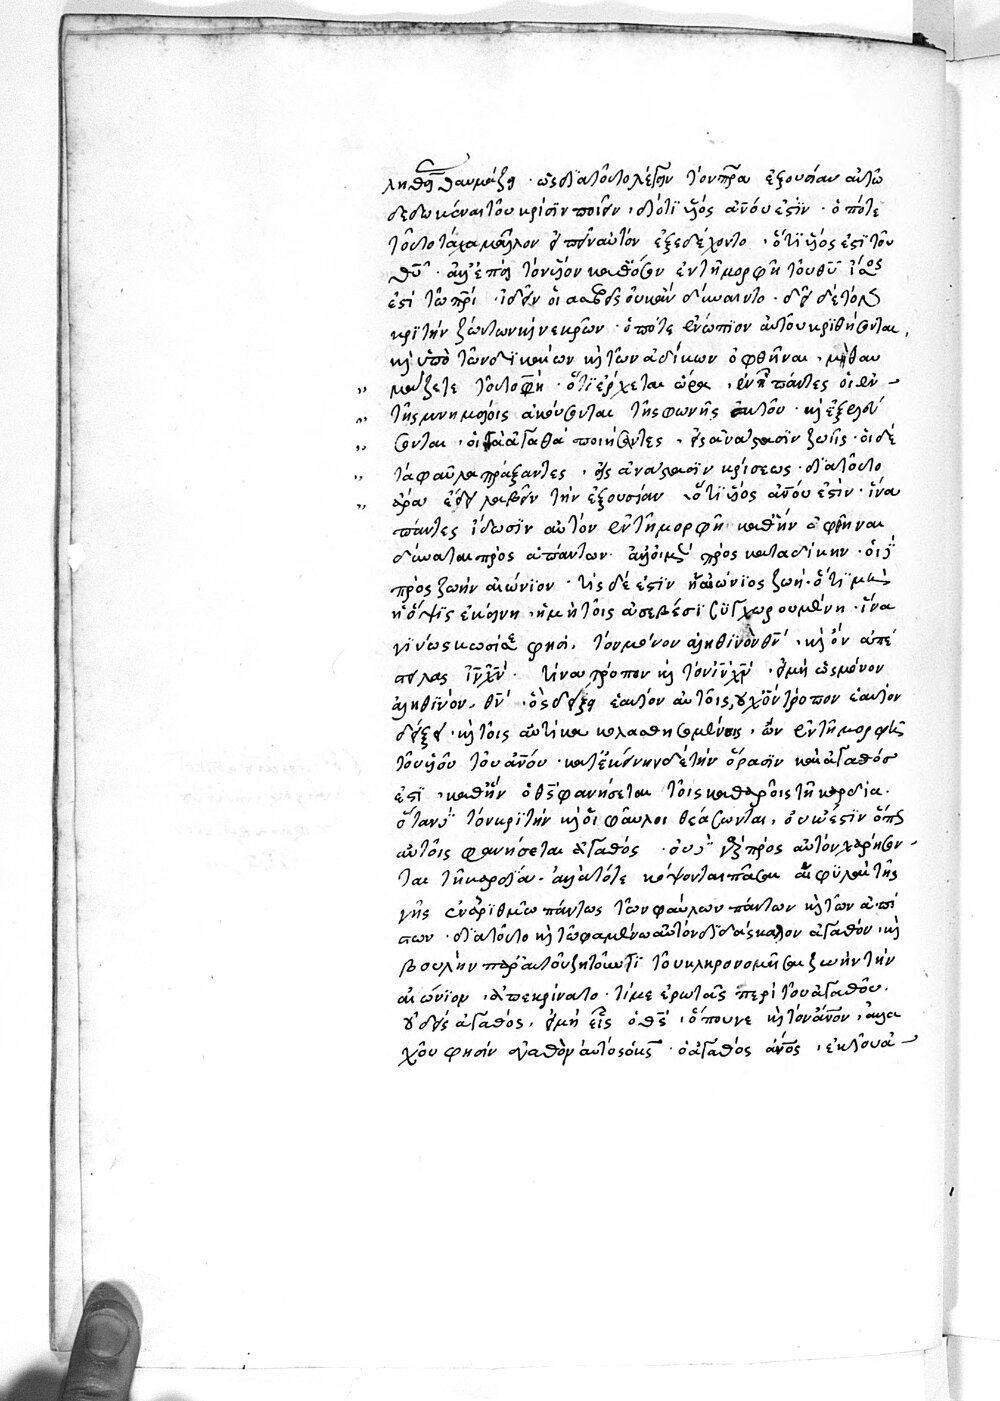 ληθῇ θαυμάζῃ · ὡς διατοῦτο λέγειν τὸν πρα ἐξουσίαν αὐτῶ
δεδωκέναι τοῦ κρίσϊν ποιεῖν · διότι υἱός ἀνου ἐστὶν · ὁπότε
τοῦτο τάχα μᾶλλον εἰπεῖν αὐτὸν ἐξεδέχοντο · ὅτι υἱός ἐστι τοῦ
θυ · ἀλλ' ἐπεὶ τὸν υἱὸν καθ' ὃ ἐν τῆ μορφῆ τοῦ θυ ἴσος
ἐστὶ τῶ πρι · ἰδεῖν οἱ ἀσεβεῖς οὐκ ἂν δύναιντο · δεῖ δὲ τὸν
κριτὴν ζώντων καὶ νεκρῶν · ὁπότε ἐνώπϊον αὐτοῦ κριθήσονται,
καὶ ὑπὸ τῶν δϊκαίων καὶ τῶν ἀδίκων ὀφθῆναι · μὴ θαυ
μάζετε τοῦτο φη · ὅτι ἔρχεται ὥρα · ἐν ἧ πάντες οἱ ἐν
τοῖς μνημείοις ἀκούσονται τῆς φωνῆς αὐτοῦ · καὶ ἐξελεύ
σονται · οἱ τὰ ἀγαθὰ ποιήσαντες · εἰς ἀνάστασϊν ζωῆς · οἱ δὲ
τὰ φαῦλα πράξαντες · εἰς ἀνάστασϊν κρίσεως · διατοῦτο
ἄρα ἔδει λαβεῖν τὴν ἐξουσίαν · ὅτι υἱός ἀνου ἐστὶν · ἵνα
πάντες ἴδωσϊν αὐτὸν ἐν τῆ μορφῆ καθ' ἣν ὀφθῆναι
δύναται πρὸς ἁπάντων · ἀλλ' οἱ μὲν πρὸς καταδίκην · οἱ δὲ
πρὸς ζωὴν αἰώνϊον · τίς δέ ἐστϊν ἡ αἰώνϊος ζωὴ · ὅτι μὴ
ἡ ὄψϊς ἐκείνη · ἡ μὴ τοῖς ἀσεβέσϊ συγχωρουμένη · ἵνα
γϊνώσκωσί σε φησι · τὸν μόνον ἀληθϊνὸν θν · καὶ ὃν ἀπέ
στειλας ιν χν · τίνα τρόπον καὶ τὸν ιν χν · εἰ μὴ ὡς μόνον
ἀληθϊνὸν · θν · ὃς δείξει ἑαυτὸν αὐτοῖς, οὐχ ὃν τρόπον ἑαυτὸν
δείξει · καὶ τοῖς αὐτίκα κολασθησομένοις · ὢν ἐν τῆ μορφῆ
τοῦ υἱοῦ τοῦ ἀνου · κατ' ἐκείνην δὲ τὴν ὅρασϊν καὶ ἀγαθός
ἐστι · καθ' ἣν ὁ θς φανήσεται τοῖς καθαροῖς τῆ καρδία ·
ὅταν δὲ τὸν κριτὴν καὶ οἱ φαῦλοι θεάσωνται, οὐκ ἔσϊν ὅπως
αὐτοῖς φανήσεται ἀγαθός · οὐ δὲ γὰρ πρὸς αὐτὸν χαρήσον
ται τῆ καρδία · ἀλλὰ τότε κόψονται πᾶσαι αἱ φῦλαι τῆς
γῆς ἐν ἀριθμῶ πάντως τῶν φαύλων πάντων καὶ τῶν ἀπί
στων · διατοῦτο καὶ τῶ φαμένω αὐτὸν διδάσκαλον ἀγαθὸν · καὶ
βουλὴν παρ' αὐτοῦ ζητοῦντι τοῦ κληρονομῆσαι ζωὴν τὴν
αἰώνϊον · ἀπεκρίνατο · τί με ἐρωτᾶς περὶ τοῦ ἀγαθοῦ ·
οὐδεὶς ἀγαθὸς · εἰ μὴ εἷς ὁ θς · ὅπου γε καὶ τὸν ἄνον · ἀλλα
χοῦ φησϊν ἀγαθὸν αὐτὸς ὁ κς · ὁ ἀγαθὸς ἄνος · ἐκ τοῦ ἀ